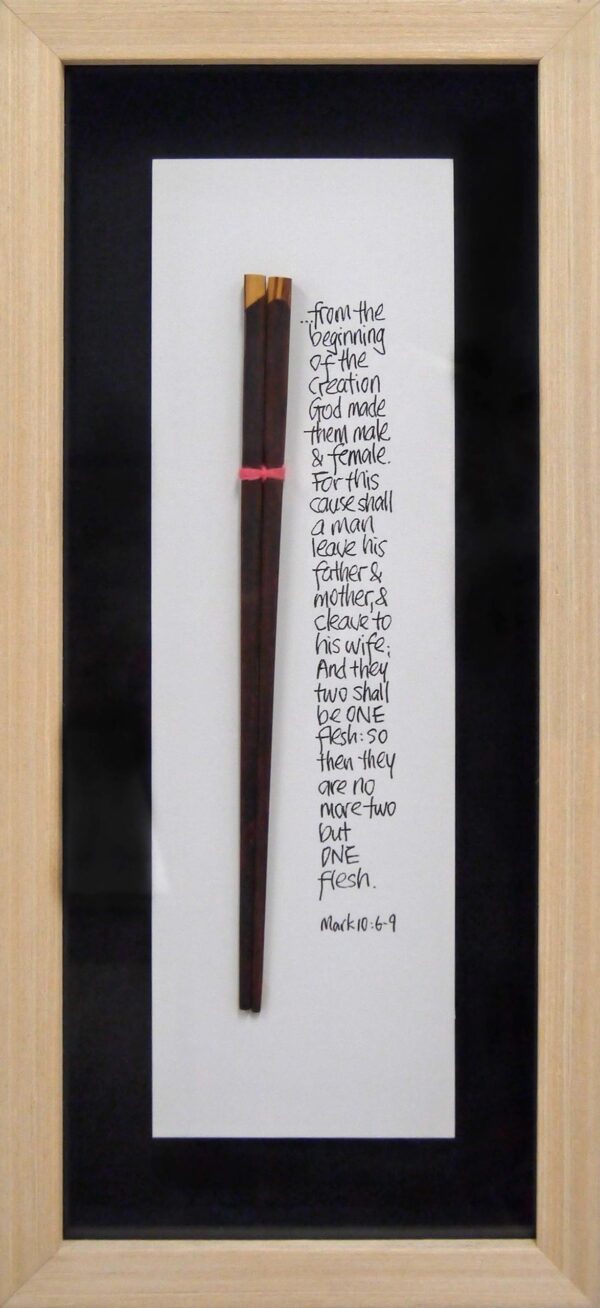 ...from the
beginning
of the
creation
God made
them male
& female.
For this
cause shall
a man
leave his
father &
mother, &
cleave to
his wife;
And they
two shall
be ONE
flesh: so
then they
are no
more two
but
ONE
flesh.
Mark 10:6-9